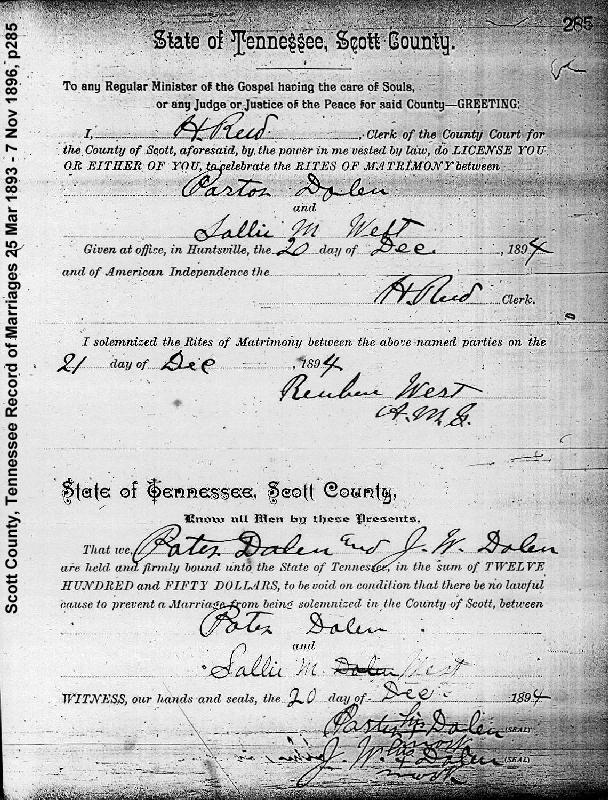 Scott County, Tennessee Record of Marriages 25 Mar 1893 - 7 Nov 1896, p285
285
State of Tennessee, Scott County.
To any Regular Minister of the Gospel having the care of Souls,
or any Judge or Justice of the Peace for said County—GREETING:
I, H. Reed, Clerk of the County Court for
the County of Scott, aforesaid, by the power in me vested by law, do LICENSE YOU
OR EITHER OF YOU, to celebrate the RITES OF MATRIMONY between
Dolen
and
Sallie M West
Given at office, in Huntsville, the 20 day of Dec , 1894
and of American Independence the
H. Reed Clerk.
I solemnized the Rites of Matrimony between the above-named parties on the
21 day of Dec , 1894
Reuben West
State of Tennessee, Scott County,
Know all Men by these Presents,
That we, Dolen and J. W. Dolen
are held and firmly bound unto the State of Tennessee, in the sum of TWELVE
HUNDRED and FIFTY DOLLARS, to be void on condition that there be no lawful
cause to prevent a Marriage from being solemnized in the County of Scott, between
Dolen
and
Sallie M. Dolen West
WITNESS, our hands and seals, the 20 day of Dec 1894
his
Dolen (SEAL)
mark
J. W. Dolen (SEAL)
mark